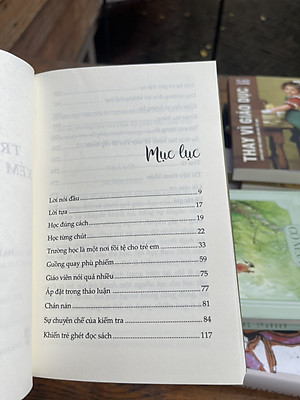 Mục lục
Lời nói đầu 9
Lời tựa 17
Học đúng cách 19
Học từng chút 22
Trường học là một nơi tồi tệ cho trẻ em 33
Guồng quay phù phiếm 59
Giáo viên nói quá nhiều 75
Áp đặt trong thảo luận 77
Chán nản 81
Sự chuyên chế của kiểm tra 84
Khiến trẻ ghét đọc sách 117
THAY VÌ GIÁO DỤC